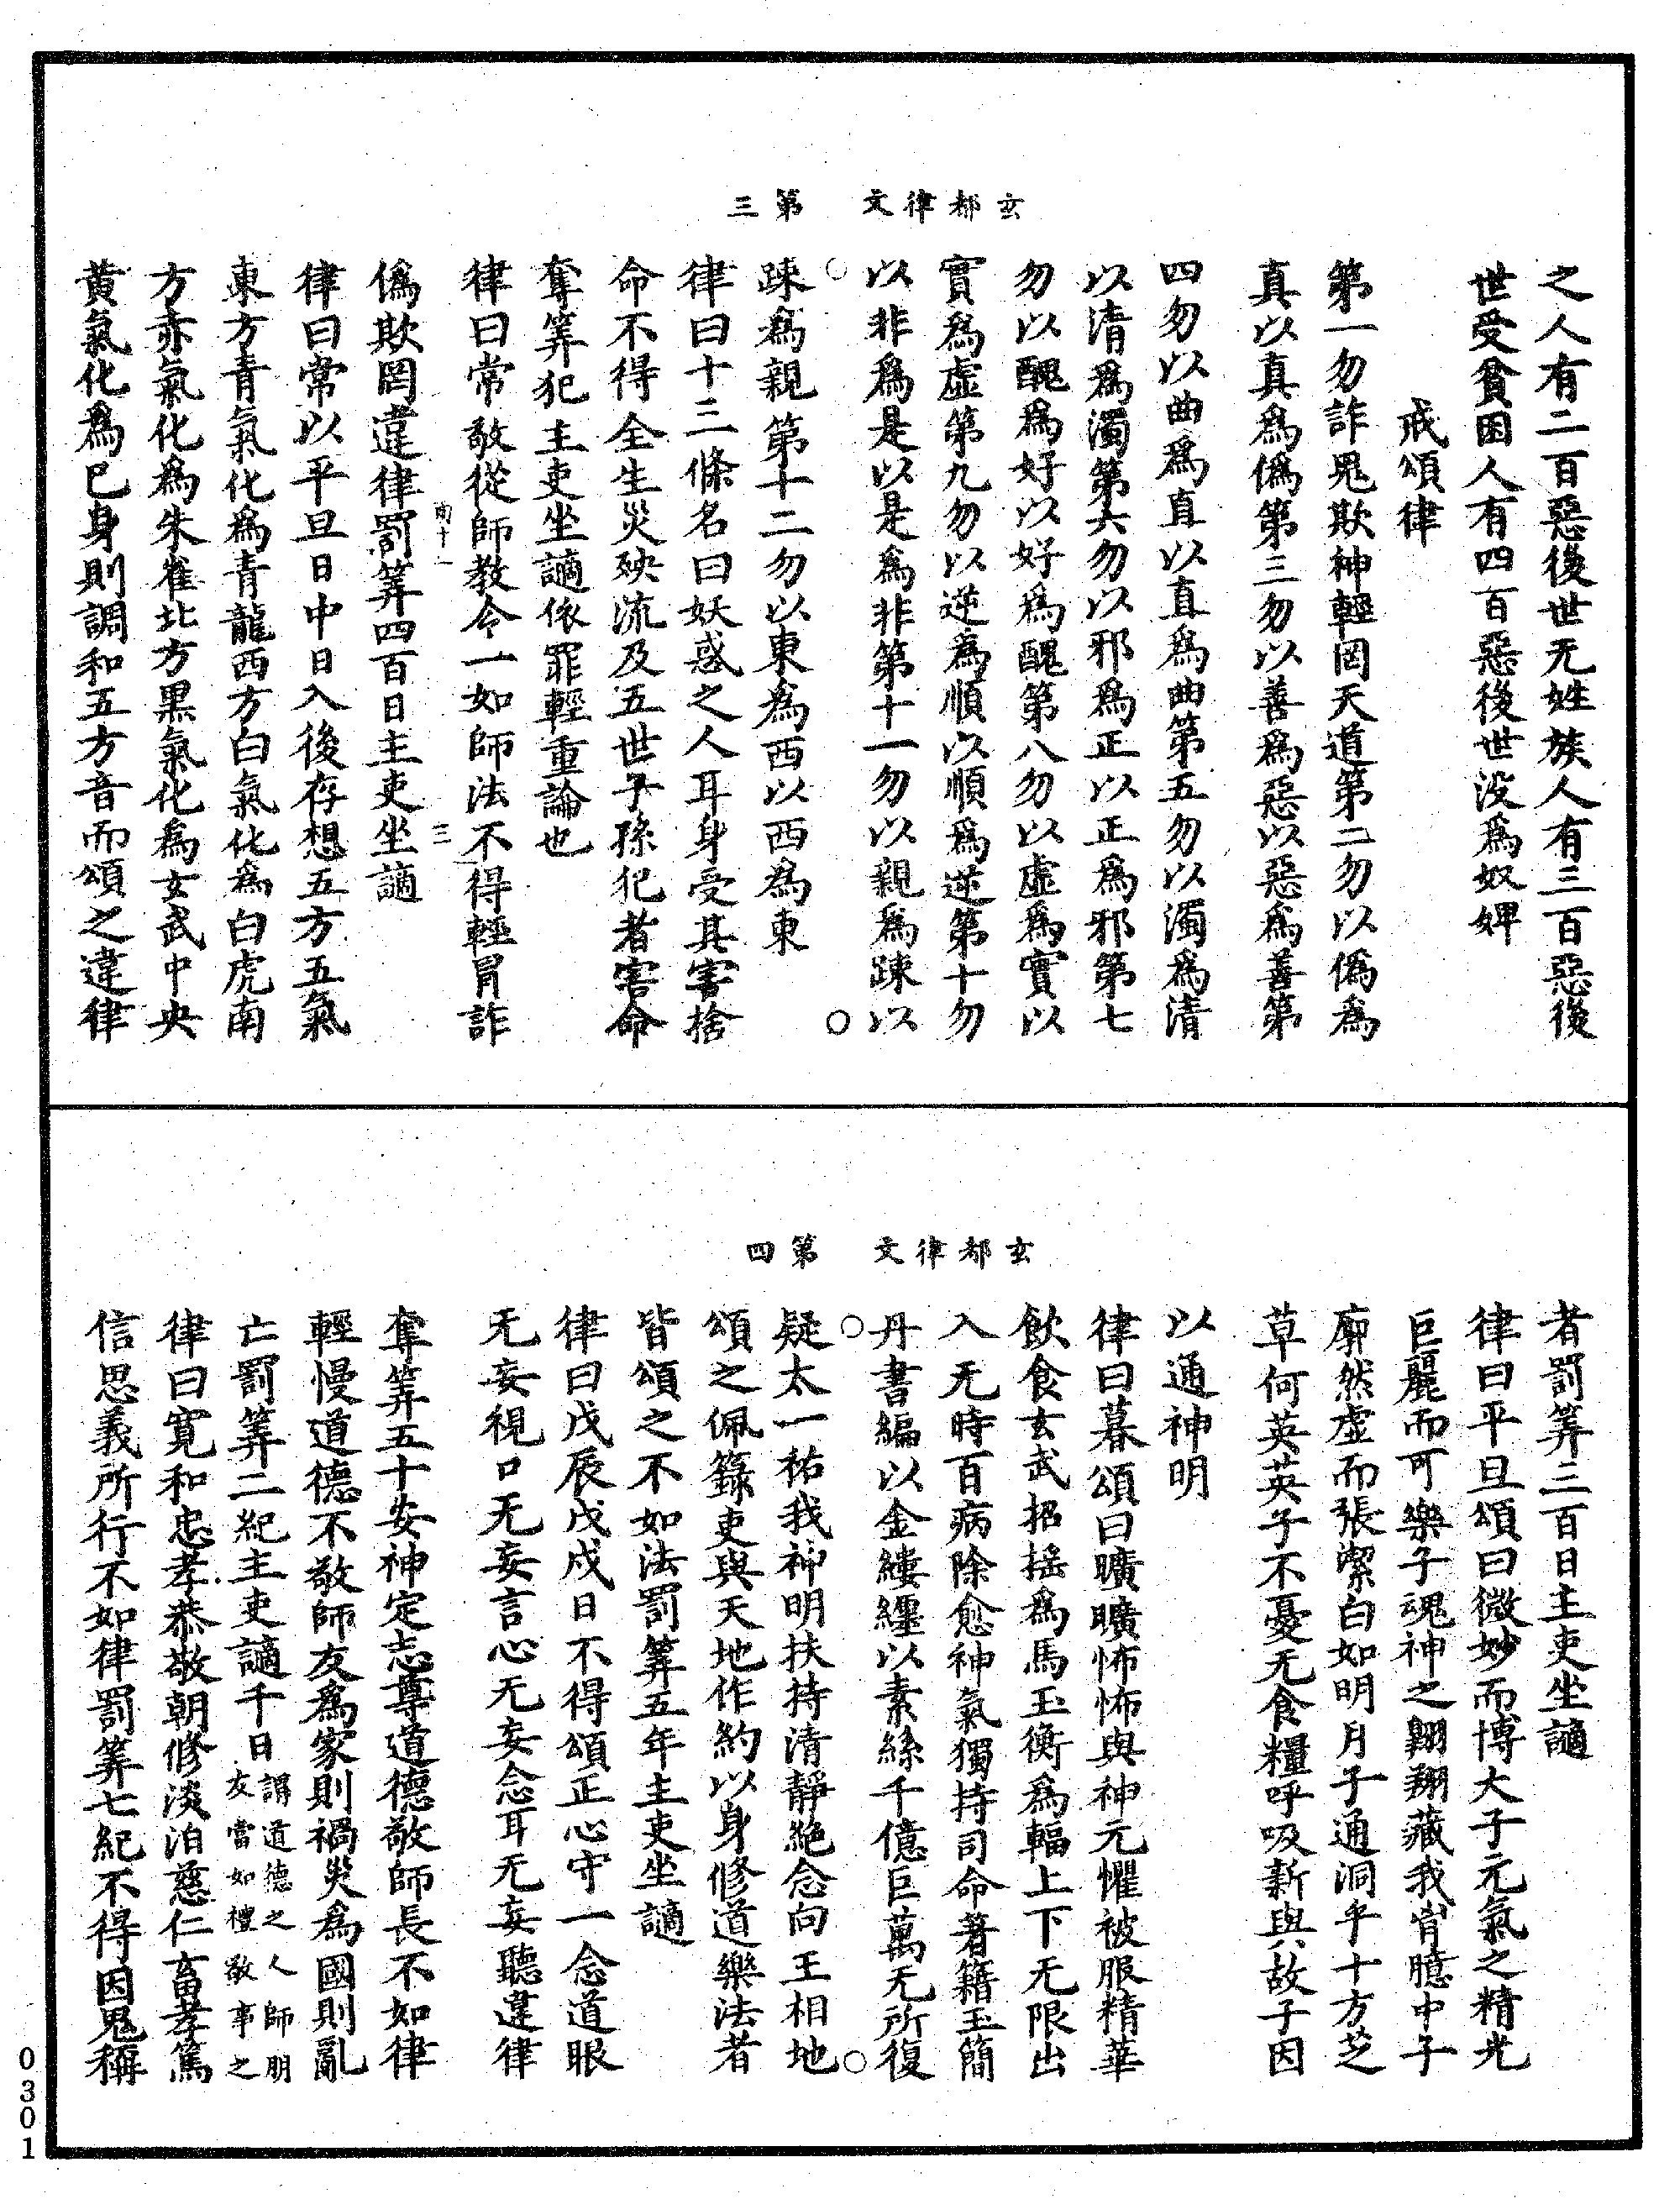 玄都律文　第三
之人有二百惡後世无姓族人有三百惡後
世受貧困人有四百惡後世没爲奴婢
戒頌律
第一勿詐鬼欺神輕罔天道第二勿以僞爲
真以真爲僞第三勿以善爲惡以惡爲善第
四勿以曲爲直以直爲曲第五勿以濁爲清
以清爲濁第六勿以邪爲正以正爲邪第七
勿以醜爲好以好爲醜第八勿以虛爲實以
實爲虛第九勿以逆爲順以順爲逆第十勿
以非爲是以是爲非第十一勿以親爲踈以
踈爲親第十二勿以東爲西以西爲東
律曰十二條名曰妖惑之人耳身受其害捨
命不得全生災殃流及五世子孫犯者害命
奪筭犯主吏坐謫依罪輕重論也
律曰常敬從師教令一如師法不得輕冐詐
三
僞欺罔違律罰筭四百日主吏坐謫
律曰常以平旦日中日入後存想五方五氣
東方青氣化爲青龍西方白氣化爲白虎南
方赤氣化爲朱雀北方黑氣化爲玄武中央
黄氣化爲巳身則調和五方音而頌之違律
玄都律文　第四
者罰筭三百日主吏坐謫
律曰平旦頌曰微妙而博大子元氣之精光
巨麗而可樂子魂神之翺翔藏我胷臆中子
廓然虛而張潔白如明月子通洞乎十方芝
草何英英子不憂无食糧呼吸新與故子因
以通神明
律曰暮頌曰曠曠怖怖與神元懼被服精華
飲食玄武招摇爲馬玉衡爲輻上下无限出
入无時百病除愈神氣獨持司命著籍玉簡
丹書編以金縷纏以素絲千億巨萬无所復
疑太一祐我神明扶持清靜絶念向王相地
頌之佩籙吏與天地作約以身修道樂法者
皆頌之不如法罰筭五年主吏坐謫
律曰戊辰戊戌日不得頌正心守一念道眼
无妄視口无妄言心无妄念耳无妄聽違律
奪筭五十安神定志尊道德敬師長不如律
輕慢道德不敬師友爲家則禍災爲國則亂
亡罰筭二紀主吏謫千日謂道德之人師朋友當如禮敬事之
律曰寛和忠孝恭敬朝修淡泊慈仁畜孝篤
信思義所行不如律罰筭七紀不得因鬼稱
0301